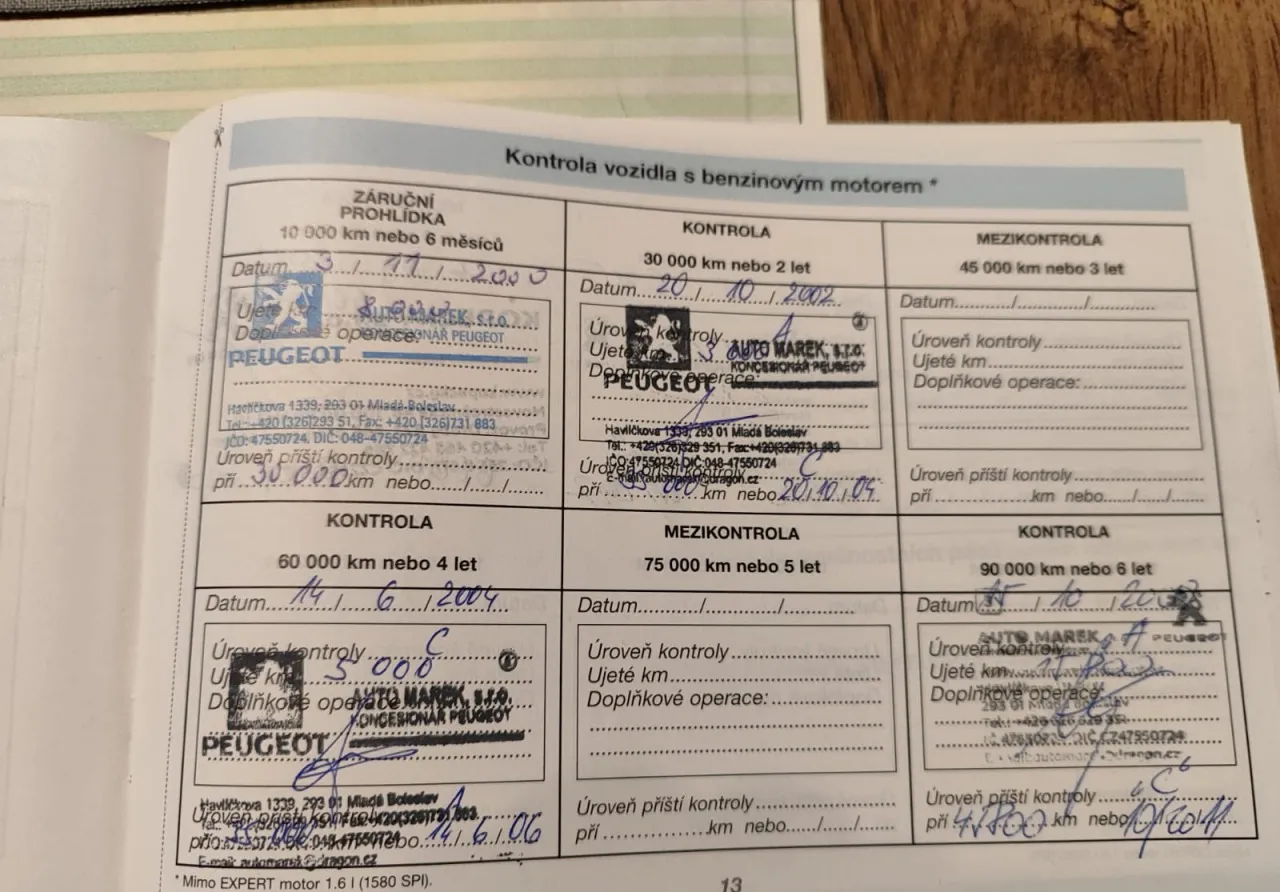 Kontrola vozidla s benzinovým motorem *
ZÁRUČNÍ
PROHLÍDKA
10 000 km nebo 6 měsíců
Datum 3 / 11 / 2000
Ujeté
Doplňkové operace:
AUTO MAREK, s.r.o.
KONCESIONÁŘ PEUGEOT
PEUGEOT
Havlíčkova 1339, 293 01 Mladá Boleslav
Tel.: +420 (326)293 51, Fax: +420 (326)731 883
IČO: 47550724, DIČ: 048-47550724
Úroveň příští kontroly
při 30 000 km nebo....../....../......
KONTROLA
30 000 km nebo 2 let
Datum 20 / 10 / 2002
Úroveň kontroly A
Ujeté km
Doplňkové operace:
AUTO MAREK, s.r.o.
KONCESIONÁŘ PEUGEOT
PEUGEOT
Havlíčkova 1339, 293 01 Mladá Boleslav
Tel.: +420(326)329 351, Fax:+420(326)731 883
IČO:47550724 DIČ:048-47550724
E-mail: automarek@dragon.cz
Úroveň příští kontroly C
při 000 km nebo 20/10/04
MEZIKONTROLA
45 000 km nebo 3 let
Datum.........../.........../...........
Úroveň kontroly
Ujeté km
Doplňkové operace:
Úroveň příští kontroly
při ................km nebo....../....../......
KONTROLA
60 000 km nebo 4 let
Datum 14 / 6 / 2004
Úroveň kontroly C
Ujeté km 5 000
Doplňkové operace
AUTO MAREK, s.r.o.
KONCESIONÁŘ PEUGEOT
PEUGEOT
Havlíčkova 1339, 293 01 Mladá Boleslav
Úroveň příští kontroly A
při km nebo 14/6/06
E-mail: automarek@dragon.cz
MEZIKONTROLA
75 000 km nebo 5 let
Datum.........../.........../...........
Úroveň kontroly
Ujeté km
Doplňkové operace:
Úroveň příští kontroly
při ................km nebo....../....../......
KONTROLA
90 000 km nebo 6 let
Datum / 10 /
AUTO MAREK
PEUGEOT
Úroveň kontroly A
Ujeté km
Doplňkové operace:
293 01 Mladá Boleslav
DIČ.CZ47550724
Úroveň příští kontroly "C"
při km nebo
* Mimo EXPERT motor 1.6 l (1580 SPI).
13